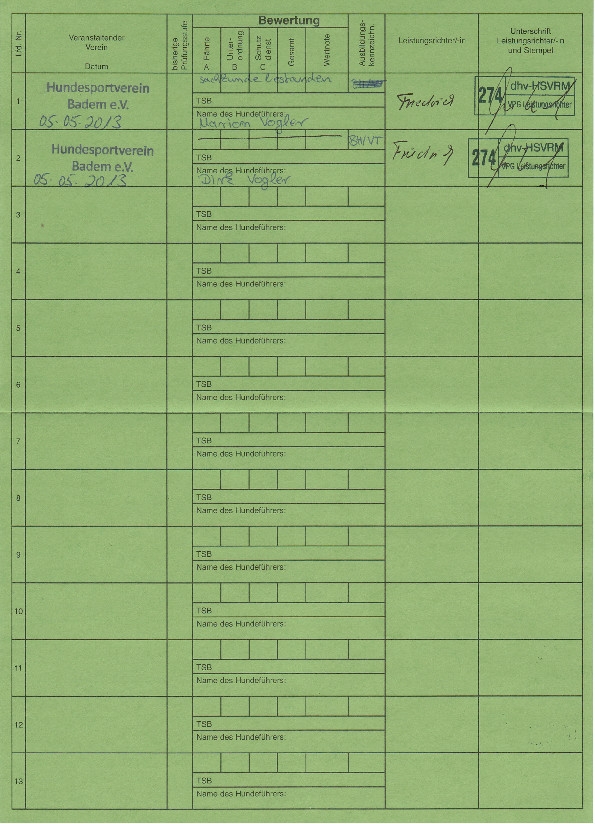 Lfd. Nr.
Veranstaltender
Verein
Datum
bisherige
Prüfungsstufe
Bewertung
A Fährte
B Unter-
ordnung
C Schutz
dienst
Gesamt
Wertnote
Ausbildungs-
kennzeichn.
Leistungsrichter/-in
Unterschrift
Leistungsrichter/-in
und Stempel
1
Hundesportverein
Badem e.V.
05.05.2013
Sachkunde bestanden
TSB
Name des Hundeführers:
Marion Vogler
Friedrich
274
dhv-HSVRM
VPG Leistungsrichter
2
Hundesportverein
Badem e.V.
05.05.2013
BH/VT
TSB
Name des Hundeführers:
Dirk Vogler
274
dhv-HSVRM
VPG Leistungsrichter
3
TSB
Name des Hundeführers:
4
TSB
Name des Hundeführers:
5
TSB
Name des Hundeführers:
6
TSB
Name des Hundeführers:
7
TSB
Name des Hundeführers:
8
TSB
Name des Hundeführers:
9
TSB
Name des Hundeführers:
10
TSB
Name des Hundeführers:
11
TSB
Name des Hundeführers:
12
TSB
Name des Hundeführers:
13
TSB
Name des Hundeführers: